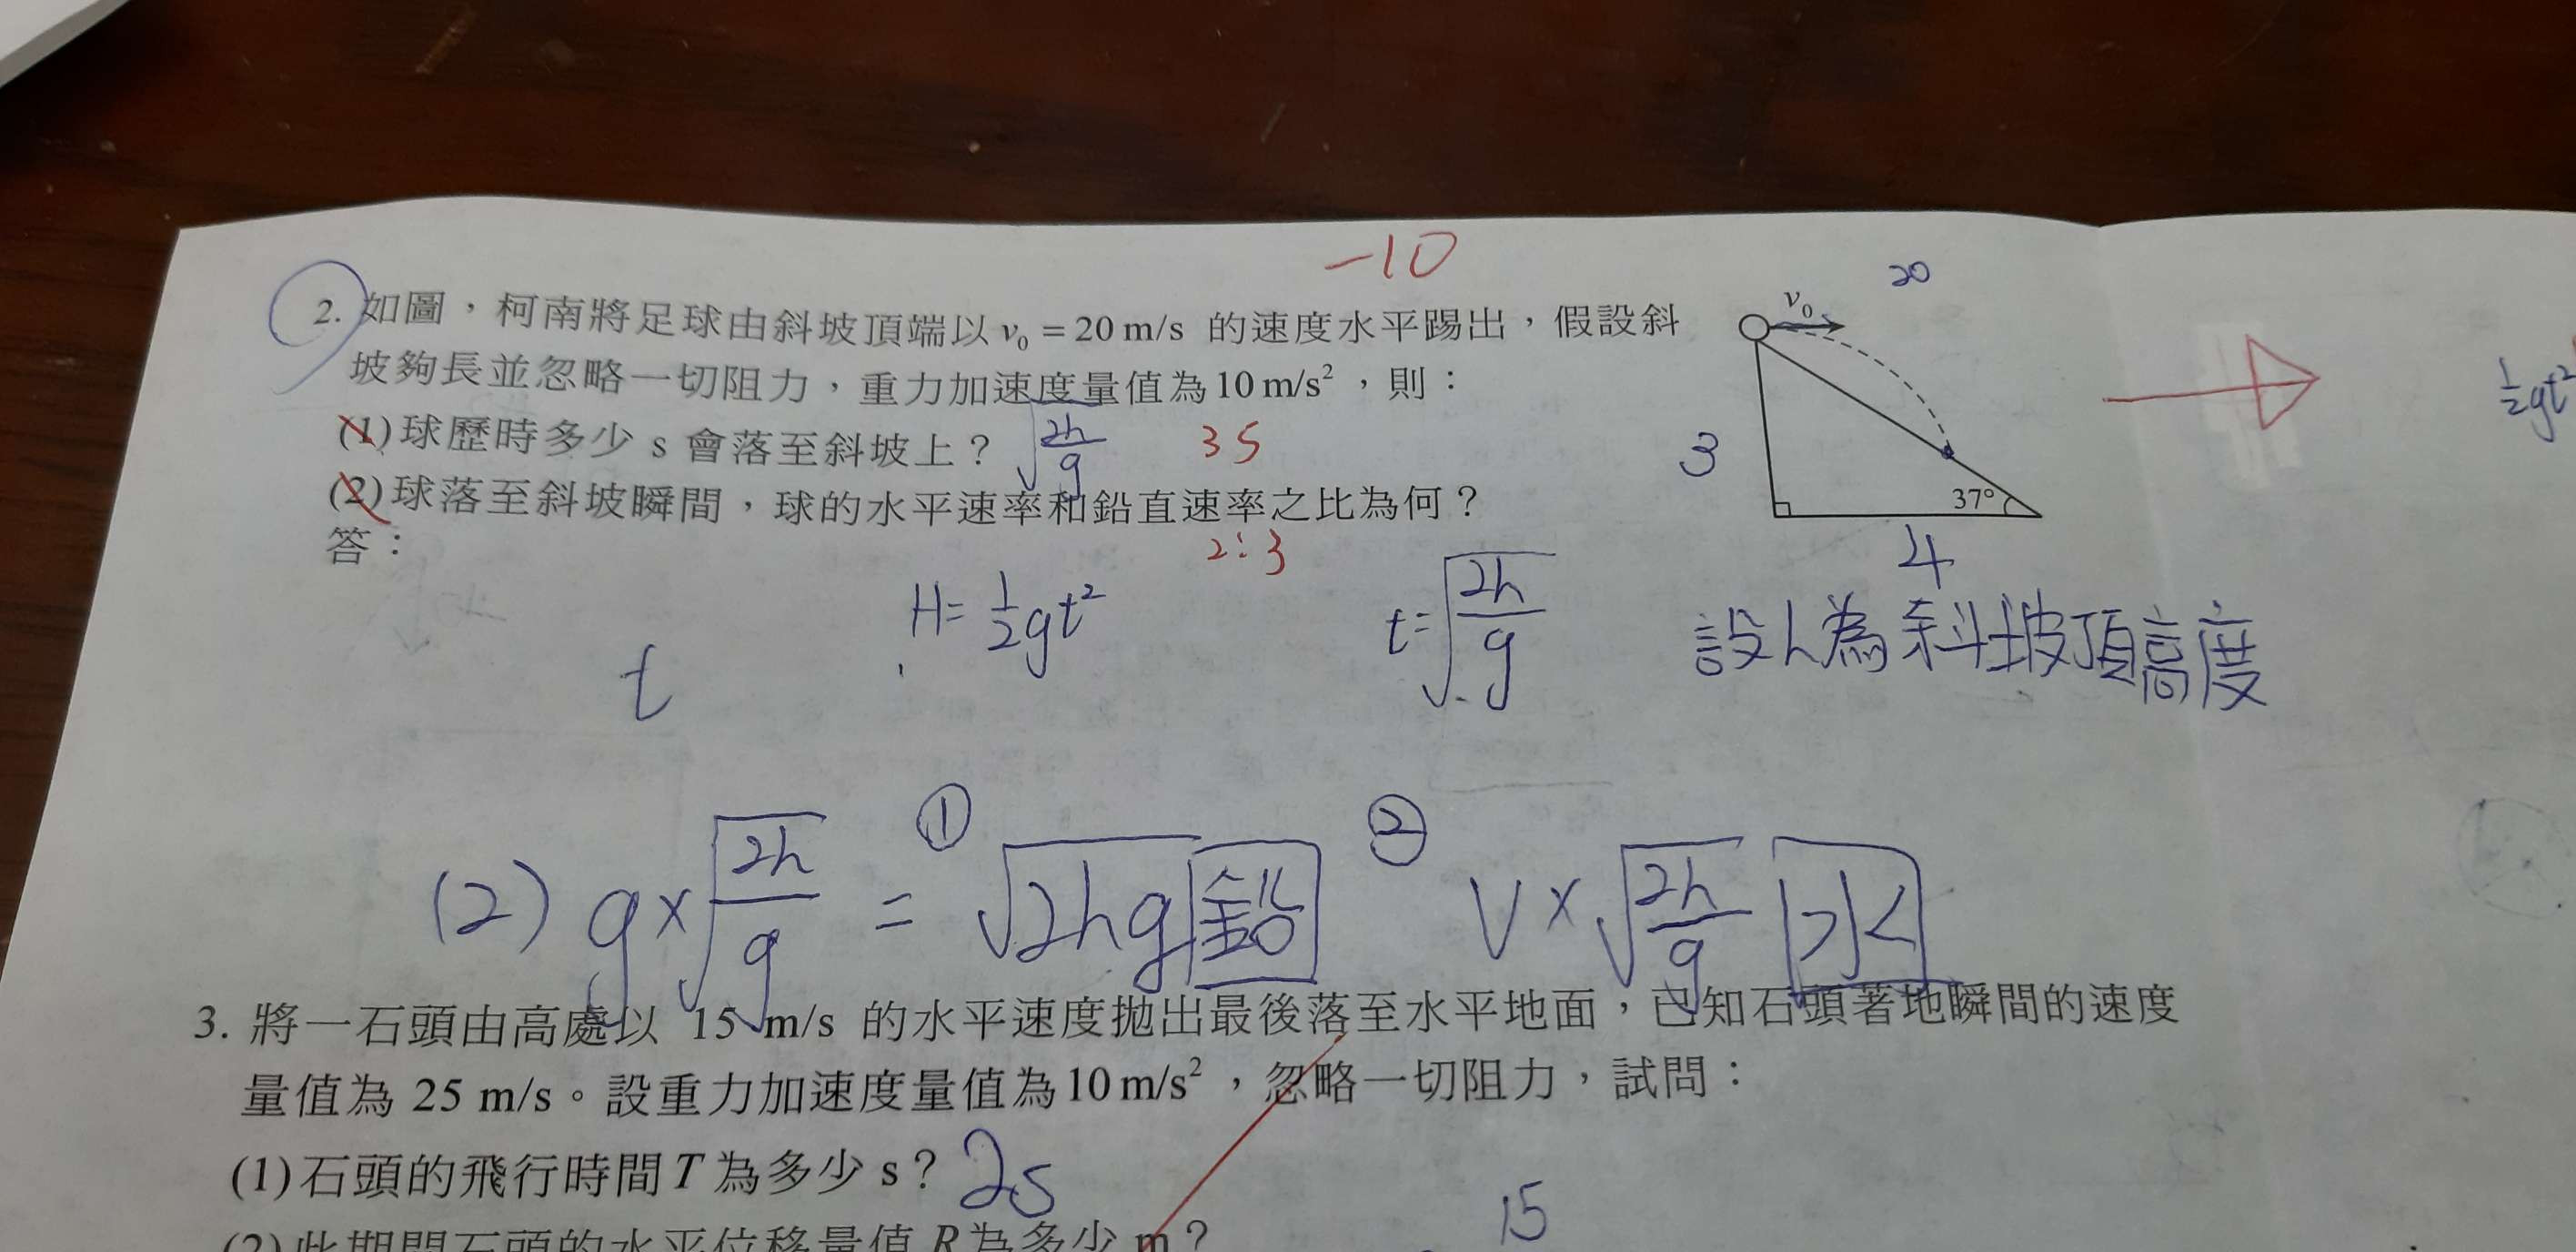 -10
2. 如圖，柯南將足球由斜坡頂端以 v₀ = 20 m/s 的速度水平踢出，假設斜
坡夠長並忽略一切阻力，重力加速度量值為 10 m/s²，則：
(1) 球歷時多少 s 會落至斜坡上？ √(2h/g) 3S
(2) 球落至斜坡瞬間，球的水平速率和鉛直速率之比為何？
2:3
答：
20
v₀
3
37°
4
½gt²
t
H= ½gt²
t= √(2h/g)
設h為斜坡頂高度
(2) g × √(2h/g) = ① √2hg 鉛 ② V × √(2h/g) 水
3. 將一石頭由高處以 15 m/s 的水平速度拋出最後落至水平地面，已知石頭著地瞬間的速度
量值為 25 m/s。設重力加速度量值為 10 m/s²，忽略一切阻力，試問：
(1) 石頭的飛行時間 T 為多少 s？ 2s
15
(2) 此期間石頭的水平位移量值 R 為多少 m？